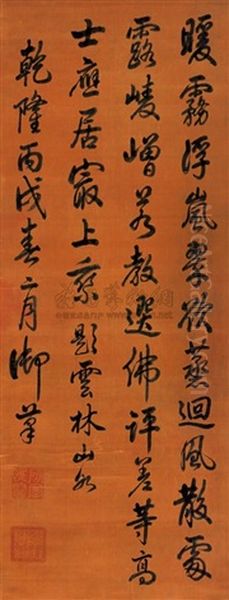 暖霧浮嵐翠欲蒸迴風散處
露崚嶒若教選佛評差等高
士應居最上乘題雲林山水
乾隆丙戌春二月御筆